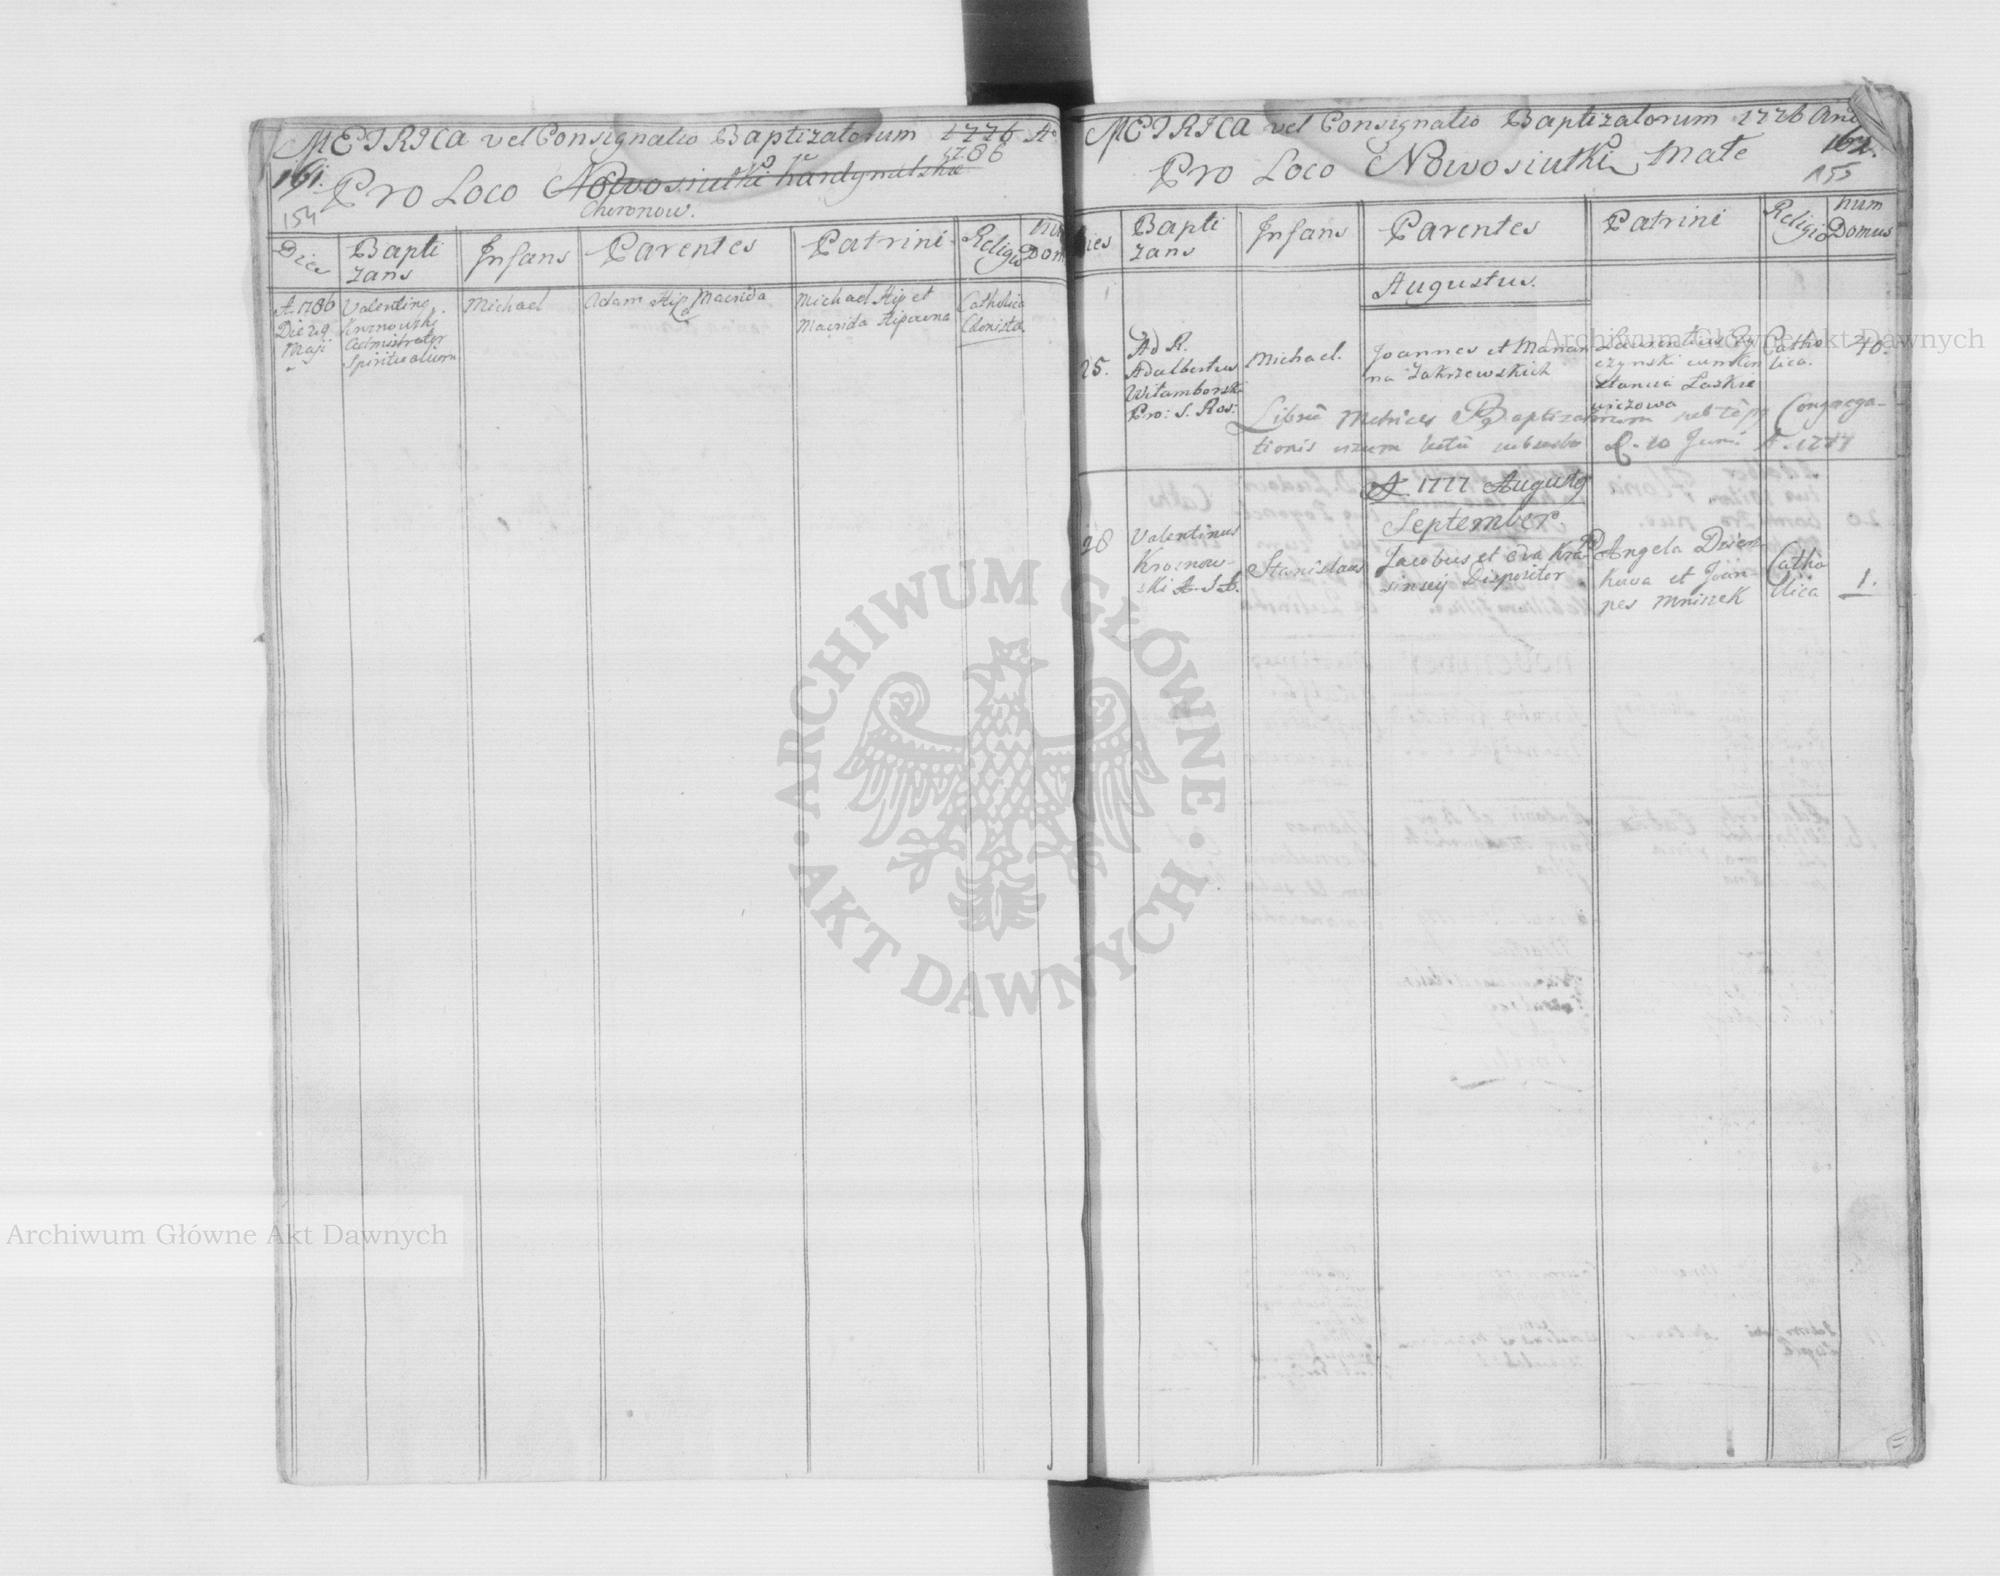 METRICA vel Consignatio Baptizatorum 1776 Ao
1786
161. Pro Loco Nowosiutki Kardynalskie
154
Choronow.
Dies
Bapti
zans
Infans
Parentes
Patrini
Religio
Num
Dom
A. 1786
Die 29
Maji
Valentino
Krznowski
Administrator
Spiritualium
Michael
Adam Hip Macrida
Michael Hip et
Macrida Hipowna
Catholica
Colonista
METRICA vel Consignatio Baptizatorum 1776 And
162.
Pro Loco Nowosiutki Małe
155
Dies
Bapti
zans
Infans
Parentes
Patrini
Religio
Num
Domus
Augustus.
25.
Ad R.
Adalbertus
Witamborski
Pro: S. Ros:
Michael.
Joannes et Marian
na Zakrzewskich
Laurentius
czynski cum Kon
stancia Laskie
wiczowa
Catho
lica.
40.
Librū Metrices Baptizatorum sub tēpg Congrega-
tionis
D. 10 Junii A. 1777
A. 1777 Augustg
September
28
Valentinus
Kroznow-
ski A. S. A.
Stanislaus
Jacobus et Eva Kra-
sinscij Dispositor
Angela
kowa et Joan-
nes Mniszek
Catho
lica
1.
ARCHIWUM GŁÓWNE · AKT DAWNYCH ·
Archiwum Główne Akt Dawnych
Archiwum Główne Akt Dawnych